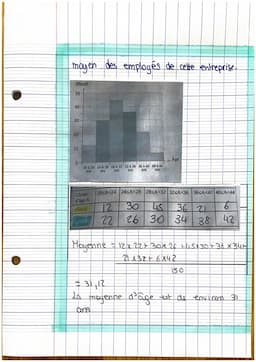 moyen des employés de cette entreprise.
12 30 45 36 21 6
22 26 30 34 38 42
Moyenne = 12 x 22 + 30 x 26 + 45 x 30 + 36 x 34 +
21 x 38 + 6 x 42
150
= 31,12
La moyenne d'âge est de environ 31
ans